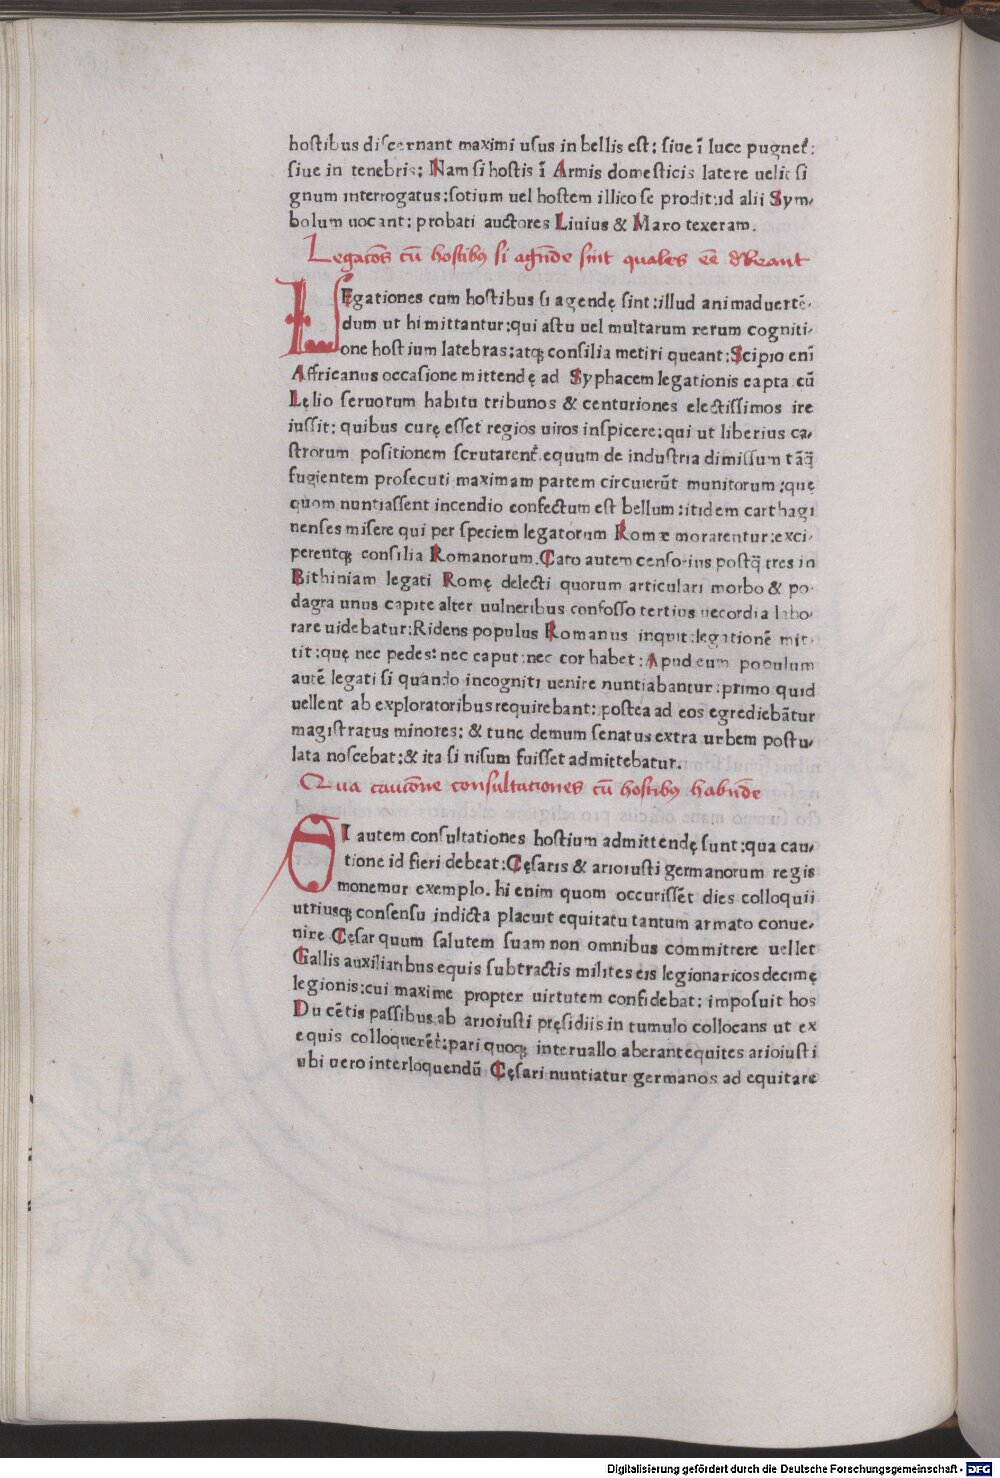 hostibus discernant maximi usus in bellis est: siue ī luce pugnet᷑:
siue in tenebris: Nam si hostis ī Armis domesticis latere uelit si
gnum interrogatus: sotium uel hostem illico se prodit: id alii Sym,
bolum uocant: probati auctores Liuius & Maro texeram.
Legacōs cū hostibꝰ si agēde sint quales eē debeant
LEgationes cum hostibus si agendę sint: illud animaduertē,
dum ut hi mittantur: qui astu uel multarum rerum cogniti,
one hostium latebras: atqꝫ consilia metiri queant: Scipio enī
Affricanus occasione mittendę ad Syphacem legationis capta cū
Lęlio seruorum habitu tribunos & centuriones electissimos ire
iussit: quibus curę esset regios uiros inspicere: qui ut liberius ca,
strorum positionem scrutarent᷑. equum de industria dimissum tāq̄
fugientem prosecuti maximam partem circuierūt munitorum: quę
quom nuntiassent incendio confectum est bellum: itidem carthagi
nenses misere qui per speciem legatorum Romæ morarentur: exci,
perentqꝫ consilia Romanorum. Cato autem censorius postq̄ tres in
Bithiniam legati Romę delecti quorum articulari morbo & po,
dagra unus capite alter uulneribus confosso tertius uecordia labo,
rare uidebatur: Ridens populus Romanus inquit: legationē mit,
tit: quę nec pedes: nec caput: nec cor habet: Apud eum populum
autē legati si quando incogniti uenire nuntiabantur: primo quid
uellent ab exploratoribus requirebant: postea ad eos egrediebātur
magistratus minores: & tunc demum senatus extra urbem postu,
lata noscebat: & ita si uisum fuisset admittebatur.
Qua caucōne consultationes cū hostibꝰ habēde
SI autem consultationes hostium admittendę sunt: qua cau,
tione id fieri debeat: Cęsaris & arioiusti germanorum regis
monemur exemplo. hi enim quom occurissēt dies colloquii
utriusqꝫ consensu indicta placuit equitatu tantum armato conue,
nire Cęsar quum salutem suam non omnibus committere uellet
Gallis auxiliaribus equis subtractis milites eis legionaricos decimę
legionis: cui maxime propter uirtutem confidebat: imposuit hos
Ducētis passibus ab arioiusti pręsidiis in tumulo collocans ut ex
equis colloquerēt᷑: pari quoqꝫ interuallo aberant equites arioiusti
ubi uero interloquendū Cęsari nuntiatur germanos ad equitare
Digitalisierung gefördert durch die Deutsche Forschungsgemeinschaft - DFG